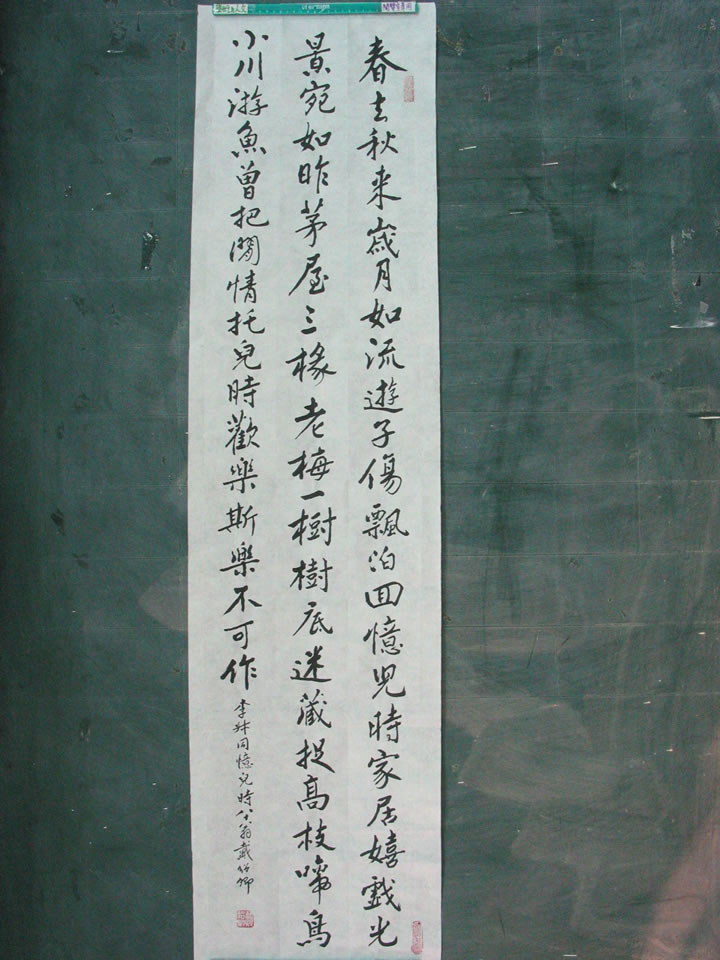 春去秋来歲月如流遊子傷飄泊回憶兒時家居嬉戲光
景宛如昨茅屋三椽老梅一樹樹底迷藏捉高枝啼鳥
小川游魚曾把閒情托兒時歡樂斯樂不可作
李叔同憶兒時 翁戴